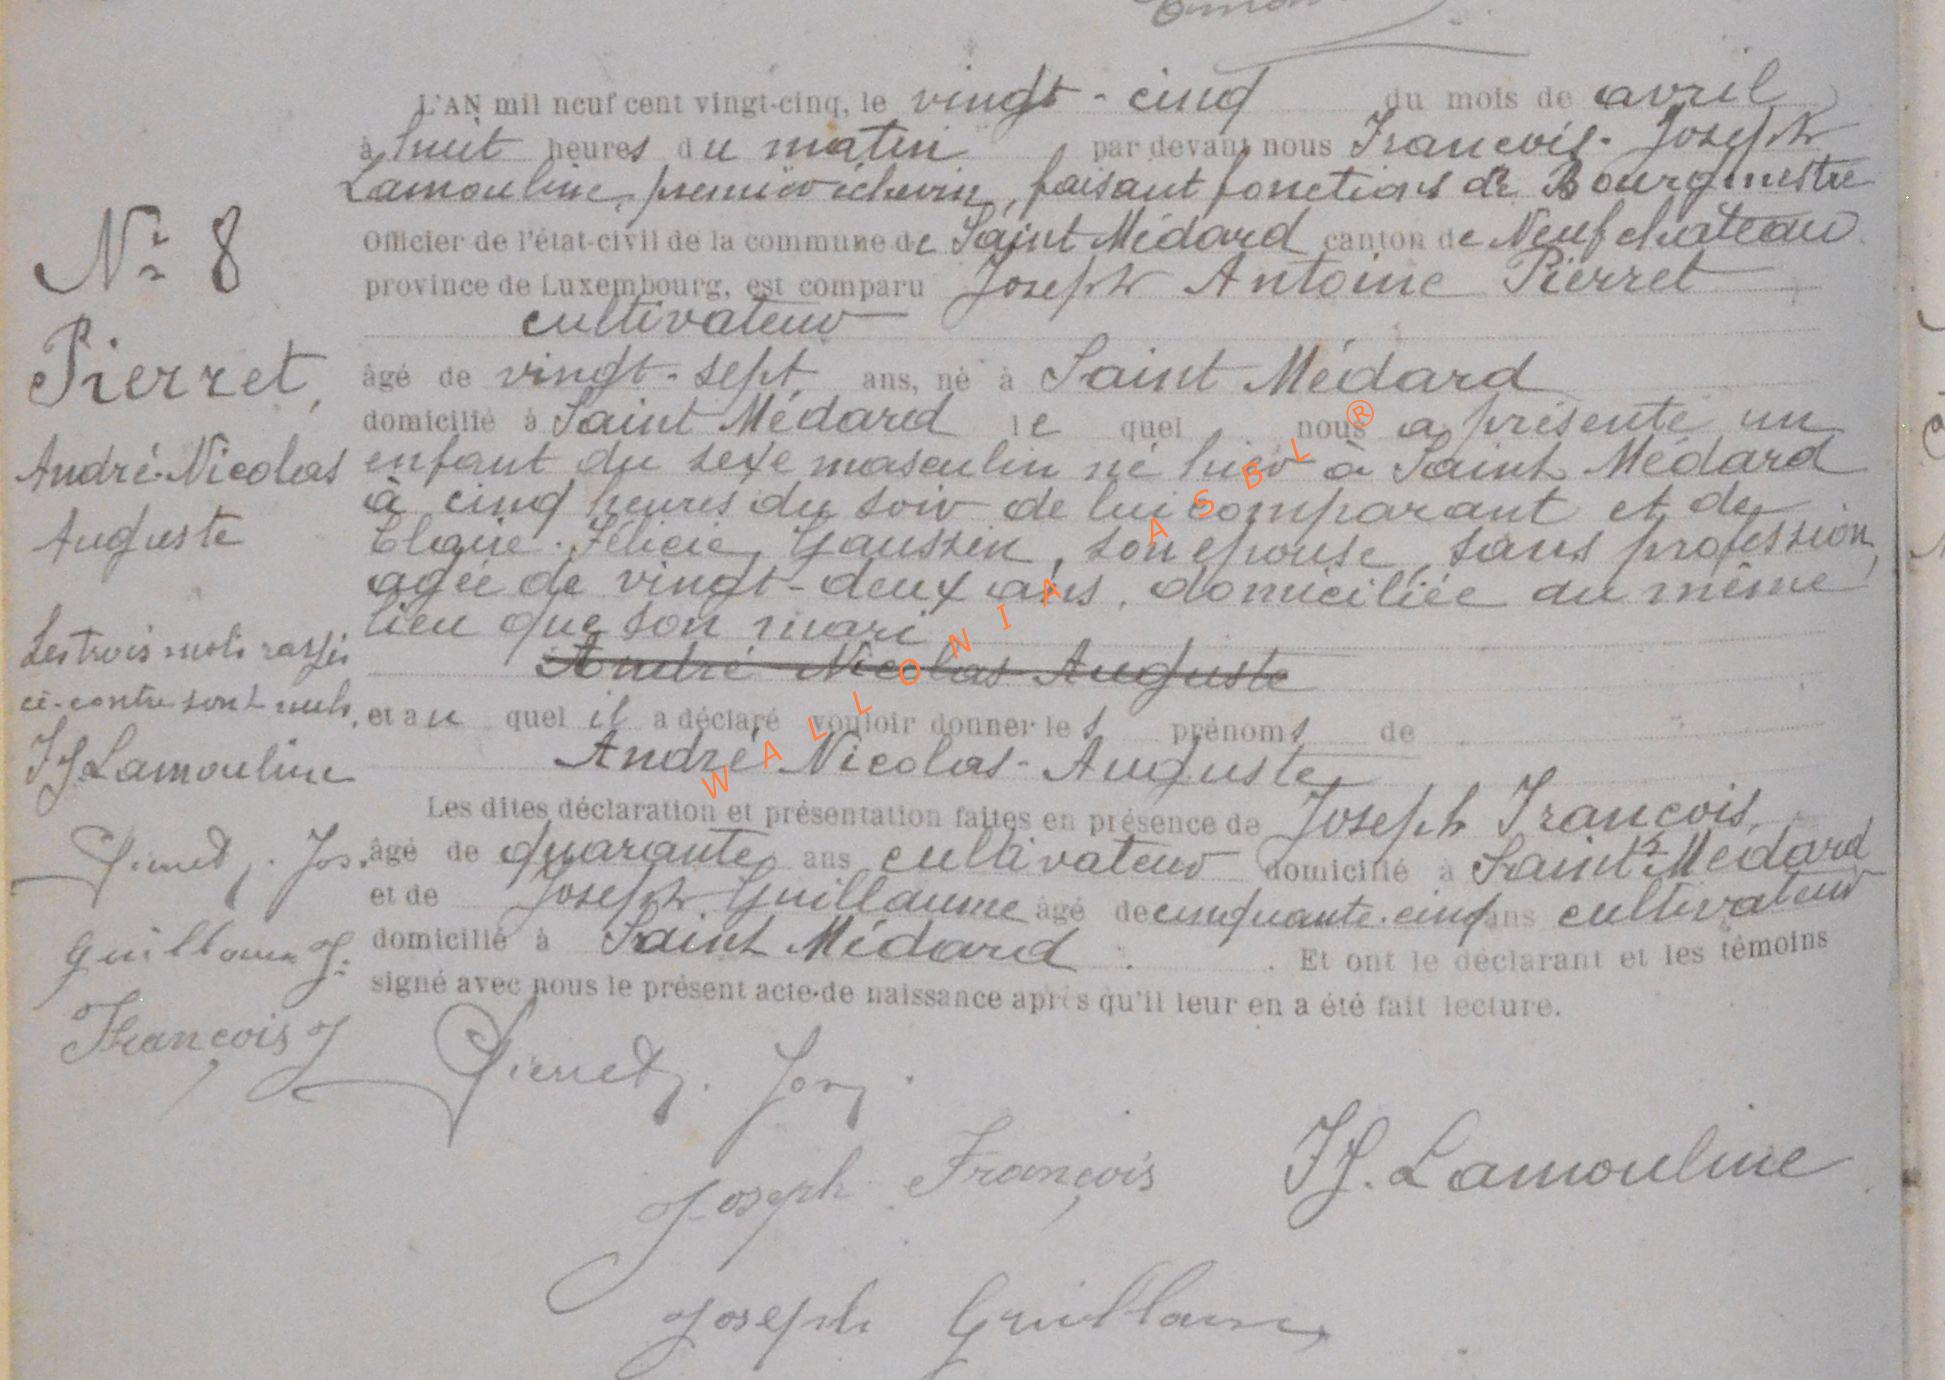 L'AN mil neuf cent vingt-cinq, le vingt-cinq du mois de avril
à huit heures du matin par devant nous François-Joseph
Lamouline, premier échevin, faisant fonctions de Bourgmestre
Officier de l'état-civil de la commune de Saint Médard canton de Neufchâteau
province de Luxembourg, est comparu Joseph Antoine Pierret
cultivateur
âgé de vingt-sept ans, né à Saint Médard
domicilié à Saint Médard le quel nous a présenté un
enfant du sexe masculin né hier à Saint Médard
à cinq heures du soir de lui comparant et de
Félicie Gaussin, son épouse, sans profession,
agée de vingt-deux ans, domiciliée au même
lieu que son mari
André Nicolas Auguste
et au quel il a déclaré vouloir donner les prénoms de
André Nicolas-Auguste
Les dites déclaration et présentation faites en présence de Joseph François,
âgé de quarante ans cultivateur domicilié à Saint-Médard
et de Joseph Guillaume âgé de cinquante-cinq ans cultivateur
domicilié à Saint Médard. Et ont le déclarant et les témoins
signé avec nous le présent acte de naissance après qu'il leur en a été fait lecture.
Nº 8
Pierret,
André-Nicolas
Auguste
Les trois mots rayés
ci-contre sont nuls.
FJ. Lamouline
Pierret, Jos.
Guillaume J.
François J
Pierret, Jos.
Joseph François
FJ. Lamouline
Joseph Guillaume
WALLONIA ASBL ®